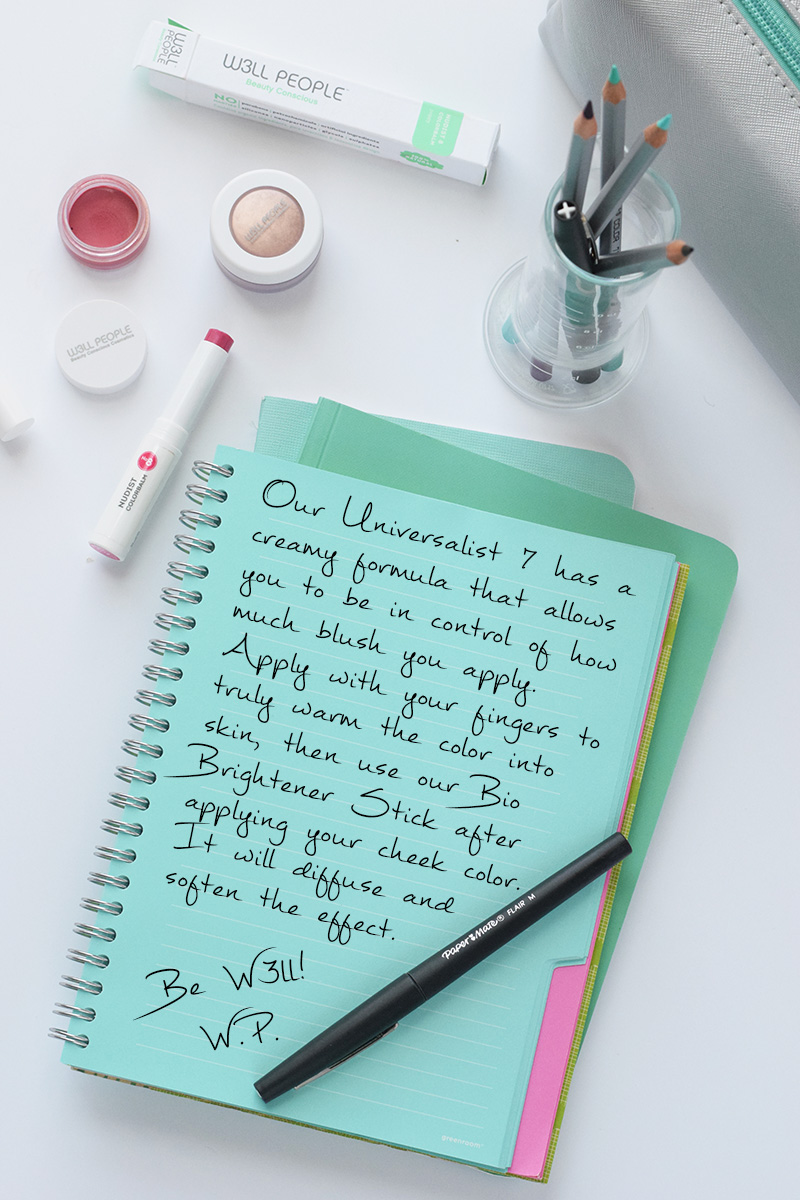 W3LL
PEOPLE
W3LL PEOPLE
Beauty Conscious
NO
parabens • petrochemicals • artificial ingredients
silicones • nanoparticles • glycols • sulphates
NUDIST
COLORBALM
W3LL PEOPLE
W3LL PEOPLE
Beauty Conscious Cosmetics
NUDIST
COLORBALM
Our Universalist 7 has a
creamy formula that allows
you to be in control of how
much blush you apply.
Apply with your fingers to
truly warm the color into
skin, then use our Bio
Brightener Stick after
applying your cheek color.
It will diffuse and
soften the effect.
Be W3ll!
W.P.
Paper Mate® FLAIR M
greenroom